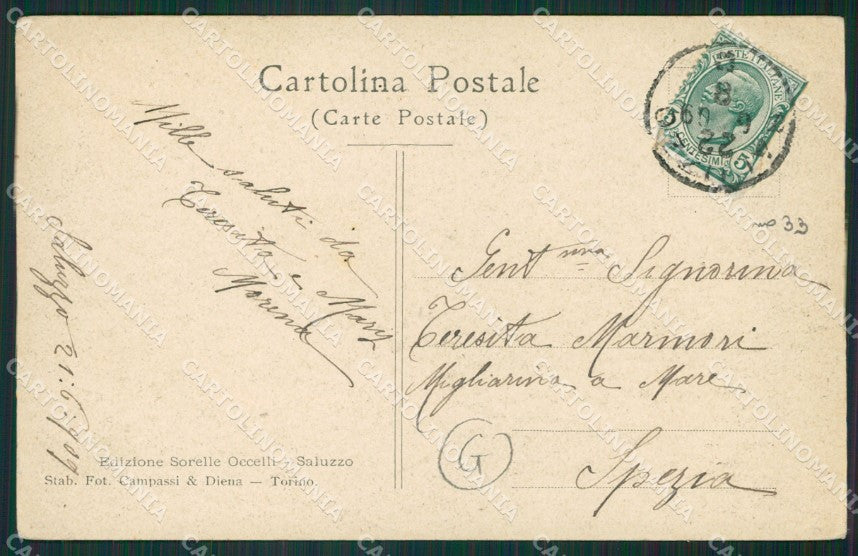 Cartolina Postale
(Carte Postale)
Mille saluti da
Teresita e Mary
Morena
Saluzzo 21:6:909
POSTE ITALIANE
CENTESIMI 5
33
Gent.ma Signorina
Teresita Marmori
Migliarina a Mare
Spezia
G
Edizione Sorelle Occelli - Saluzzo
Stab. Fot. Campassi & Diena — Torino.
CARTOLINOMANIA